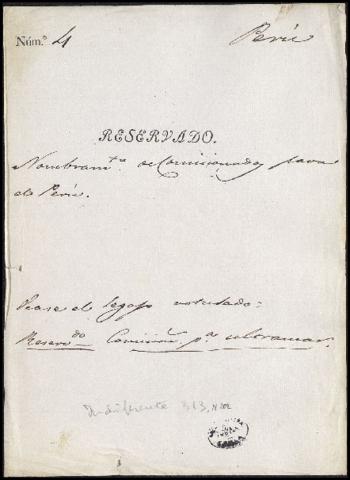 Núm.º 4
Perú
RESERVADO.
Nombram.tos de Comisionados para
el Perú.
Vease el legajo rotulado:
Reserv.do Comisión p.a ultramar.
Indiferente 313,